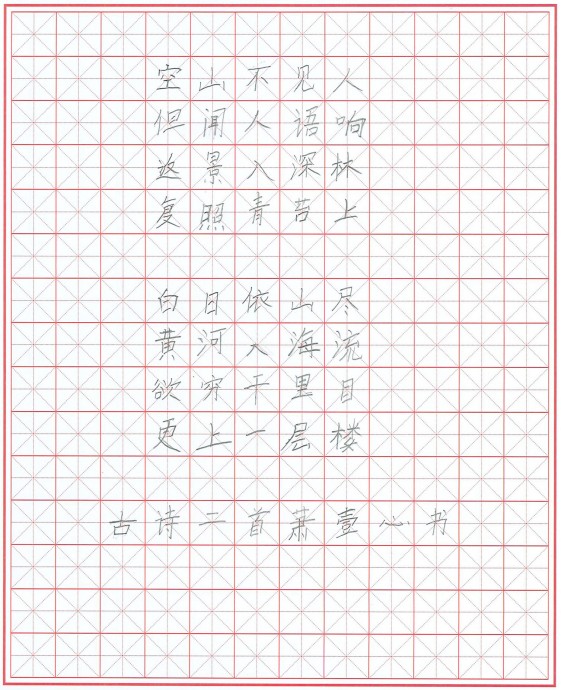 空山不见人
但闻人语响
返景入深林
复照青苔上
白日依山尽
黄河入海流
欲穷千里目
更上一层楼
古诗二首萧壹心书